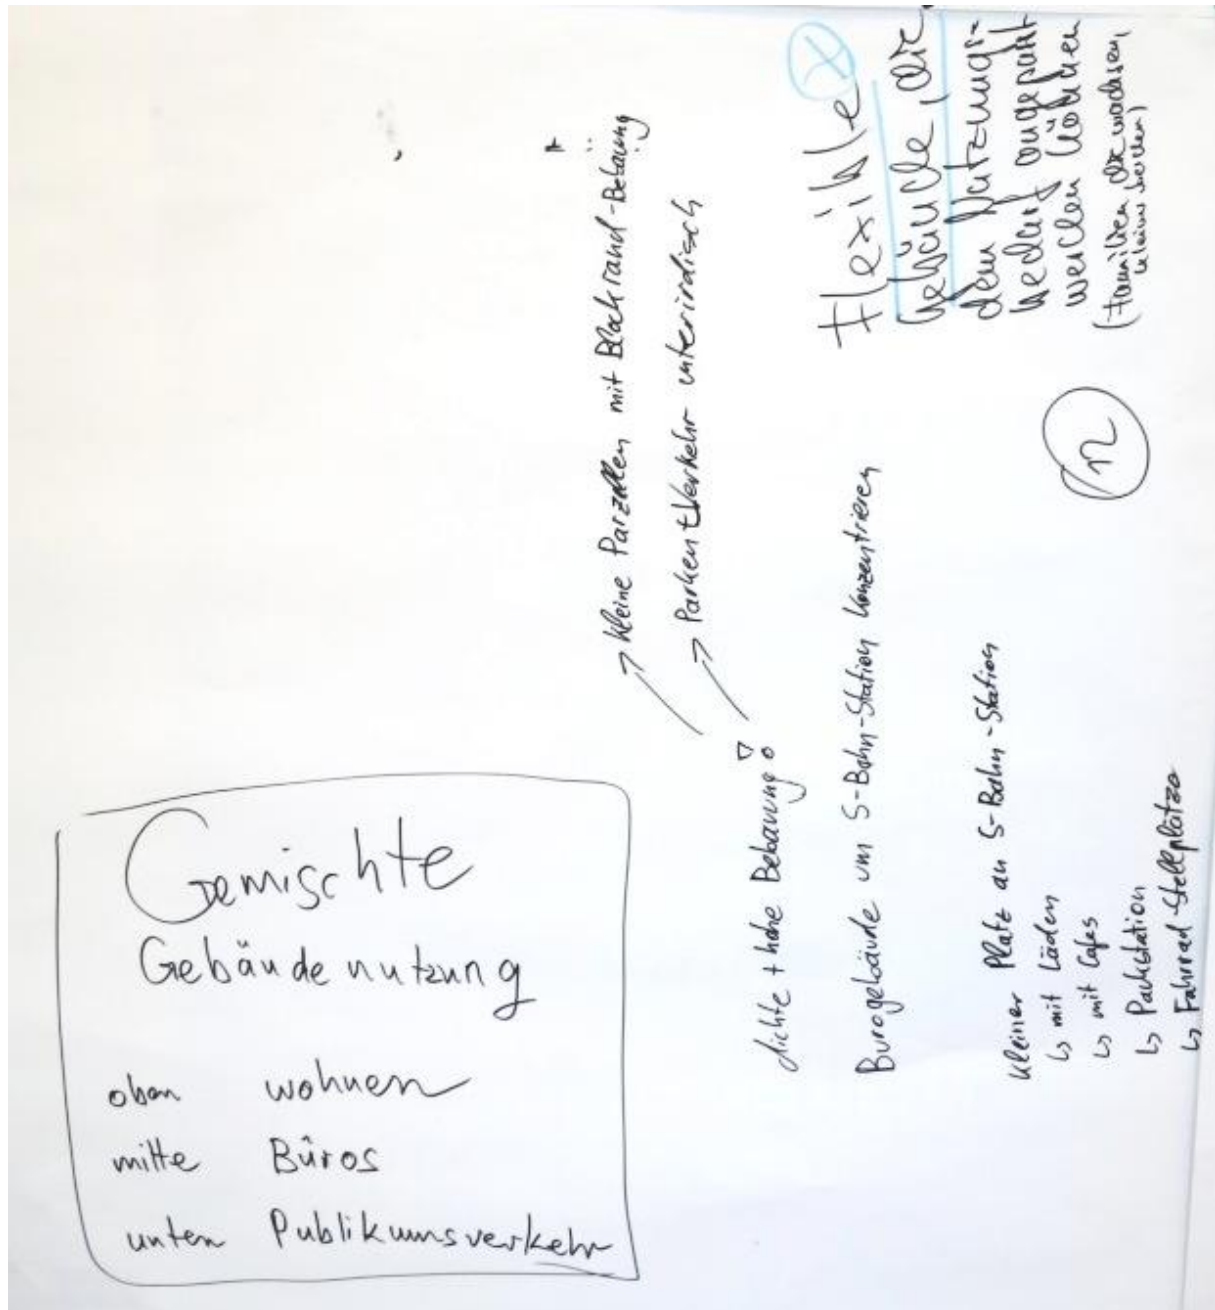 Gemischte
Gebäudenutzung
oben wohnen
mitte Büros
unten Publikumsverkehr
dichte + hohe Bebauung!
→ kleine Parzellen mit Blockrand-Bebauung
→ Parken + Verkehr unterirdisch
Bürogebäude um S-Bahn-Station konzentrieren
kleiner Platz an S-Bahn-Station
↳ mit Läden
↳ mit Cafes
↳ Packstation
↳ Fahrrad-Stellplätze
Flexible
Gebäude, die
dem Nutzungs-
bedarf angepaßt
werden können
(Familien die wachsen,
kleiner werden)
12